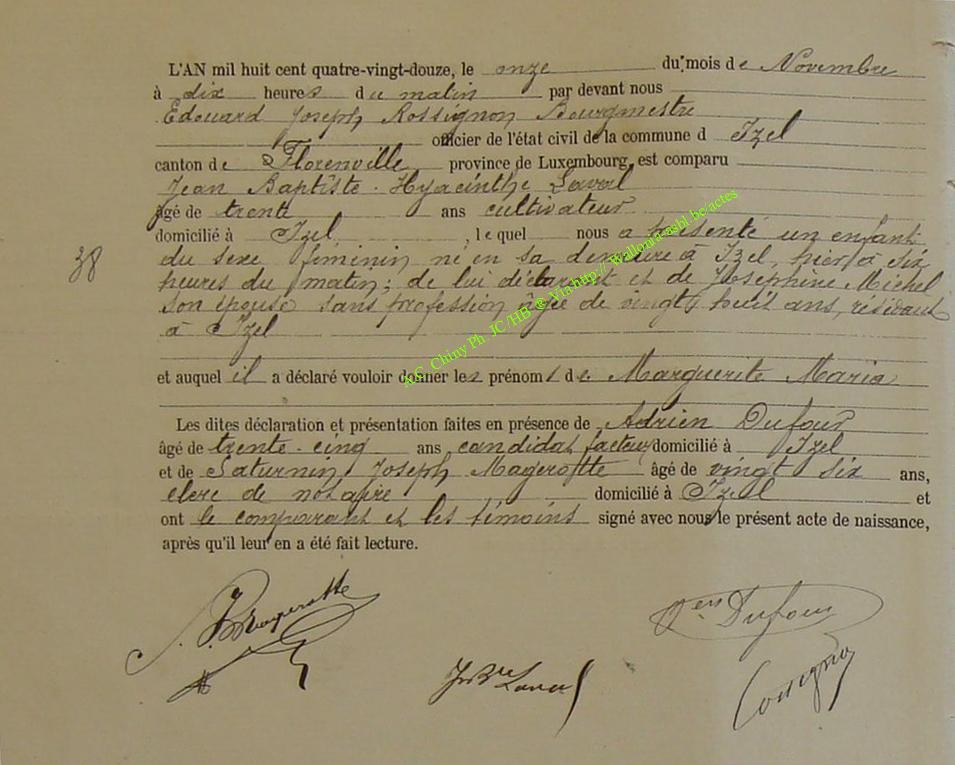 L'AN mil huit cent quatre-vingt-douze, le onze du mois de Novembre
à dix heures du matin par devant nous
Edouard Joseph Rossignon Bourgmestre
officier de l'état civil de la commune d Izel
canton de Florenville province de Luxembourg, est comparu
Jean Baptiste Hyacinthe Laval
âgé de trente ans cultivateur
domicilié à Izel, lequel nous a présenté un enfant
38
du sexe féminin né en sa demeure à Izel, hier à six
heures du matin; de lui déclarant et de Joséphine Michel
son épouse sans profession âgée de vingt huit ans, résidant
à Izel
A.G. Chiny Ph JC/HB © Via http://Wallonia-asbl.be/actes
et auquel il a déclaré vouloir donner les prénoms de Marguerite Maria
Les dites déclaration et présentation faites en présence de Adrien Dufour
âgé de trente-cinq ans candidat facteur domicilié à Izel
et de Saturnin Joseph Magerotte âgé de vingt six ans,
clerc de notaire domicilié à Izel et
ont le comparant et les témoins signé avec nous le présent acte de naissance,
après qu'il leur en a été fait lecture.
S. J. Magerotte
Dufour
J Bte Laval